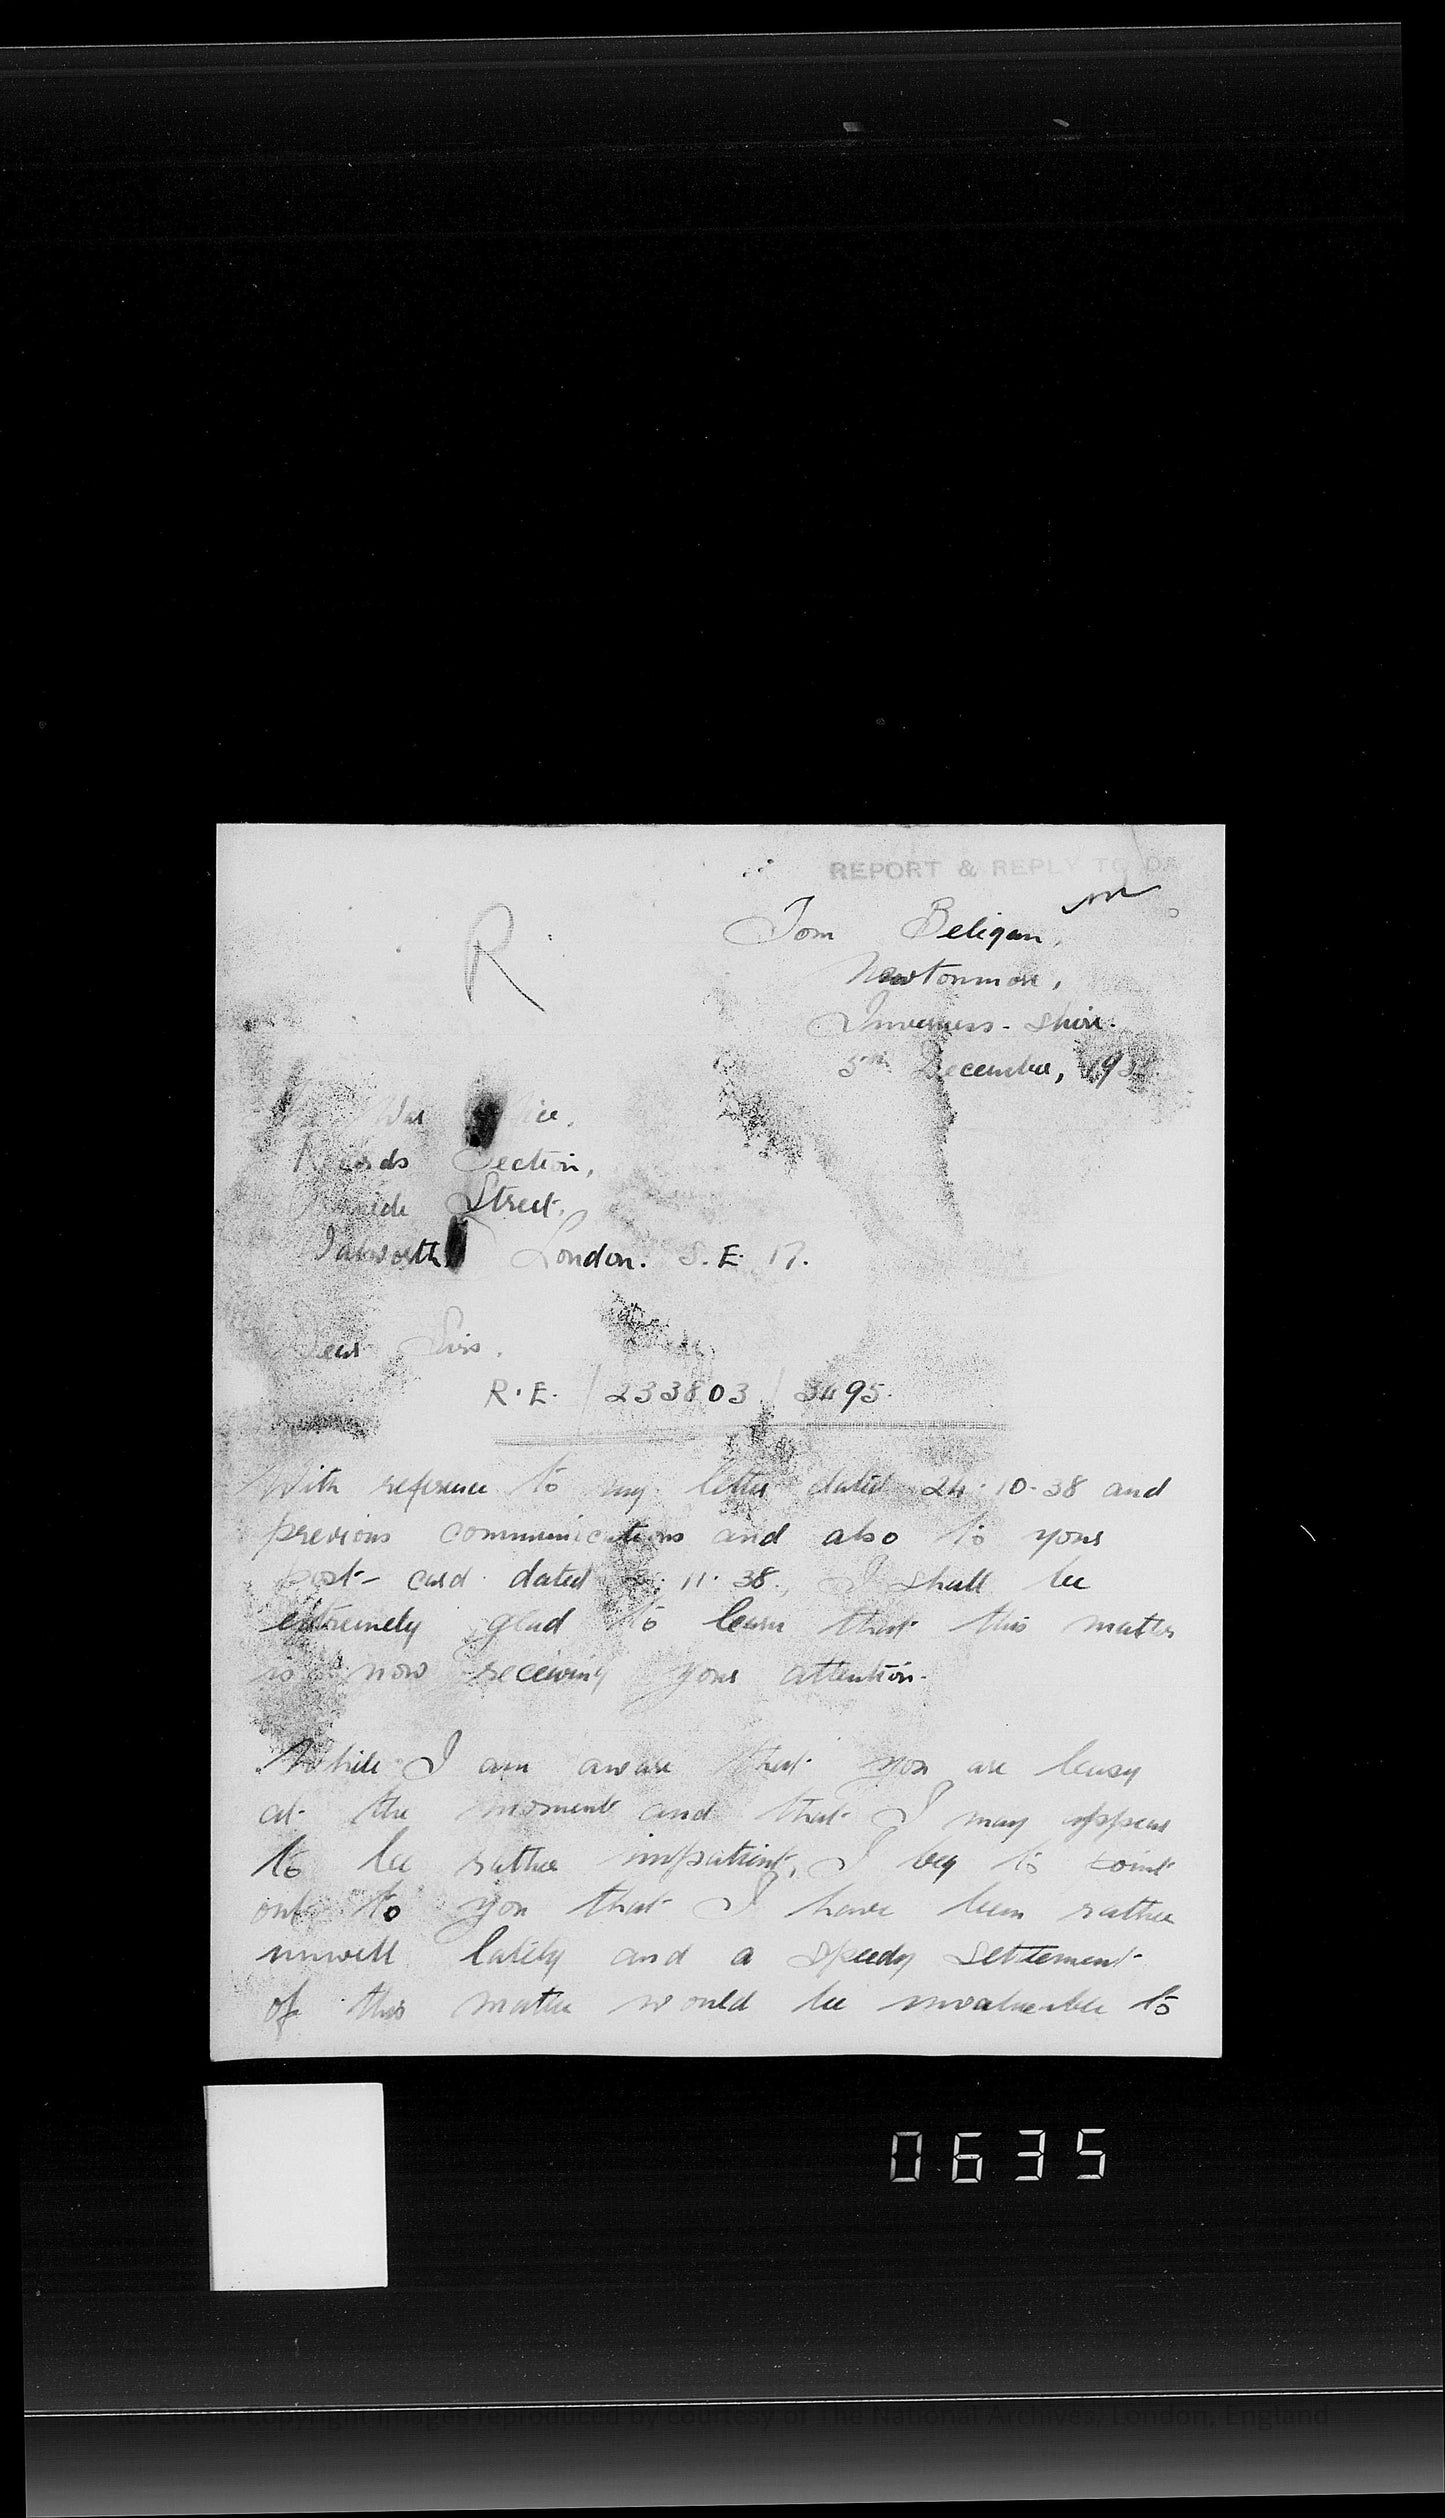 REPORT & REPLY TO DA
R
Tom Beligan,
Newtonmore,
Inverness-shire.
5th December, 1938
War Office,
Records Section,
Street,
Walworth London. S.E. 17.
Dear Sirs,
R.E. / 233803 / 3495.
With reference to my letter dated 24.10.38 and
previous communications and also to your
post-card dated 11.38., I shall be
extremely glad to learn that this matter
is now receiving your attention.
While I am aware that you are busy
at the moment and that I may appear
to be rather impatient, I beg to point
out to you that I have been rather
unwell lately and a speedy settlement
of this matter would be invaluable to
0635
© Crown Copyright Images reproduced by courtesy of The National Archives, London, England